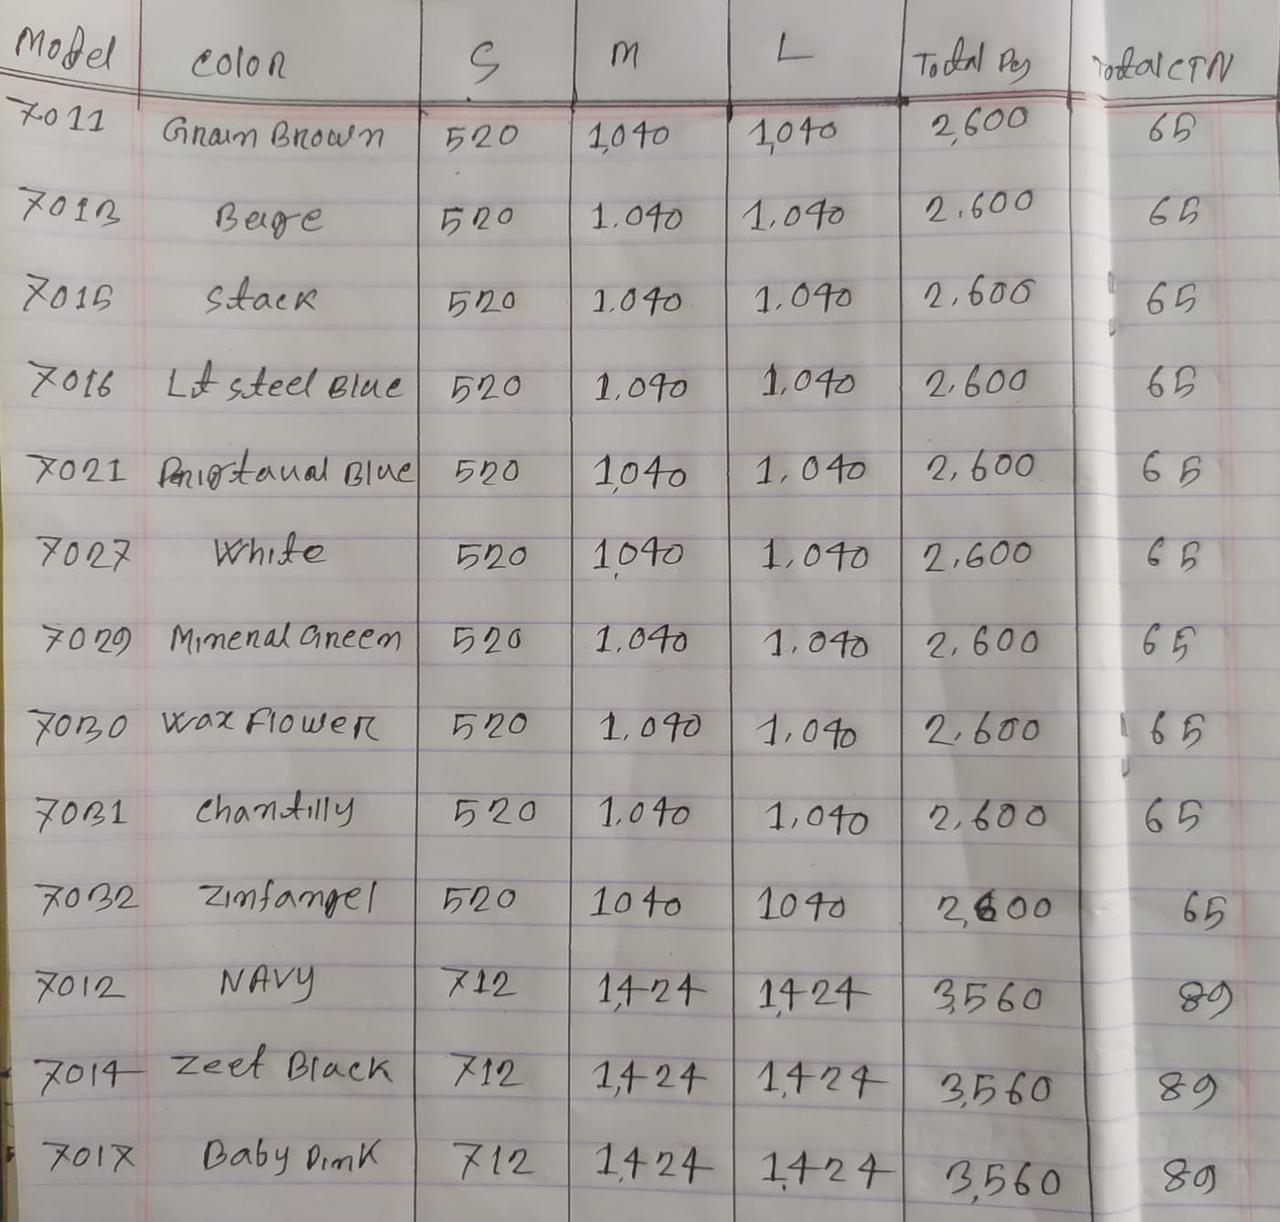 Model Color S M L Total Pcs Total CTN
7011 Grain Brown 520 1,040 1,040 2,600 65
7013 Beige 520 1.040 1.040 2.600 65
7015 Stack 520 1.040 1.040 2.600 65
7016 Lt Steel Blue 520 1.040 1.040 2.600 65
7021 Blue 520 1,040 1,040 2,600 65
7027 White 520 1,040 1,040 2,600 65
7029 Mineral Green 520 1.040 1.040 2,600 65
7030 Wax Flower 520 1,040 1,040 2,600 65
7031 Chantilly 520 1,040 1,040 2,600 65
7032 Zinfangel 520 1040 1040 2,600 65
7012 NAVY 712 1,424 1,424 3,560 89
7014 Zeet Black 712 1,424 1,424 3,560 89
7017 Baby Pink 712 1,424 1,424 3,560 89